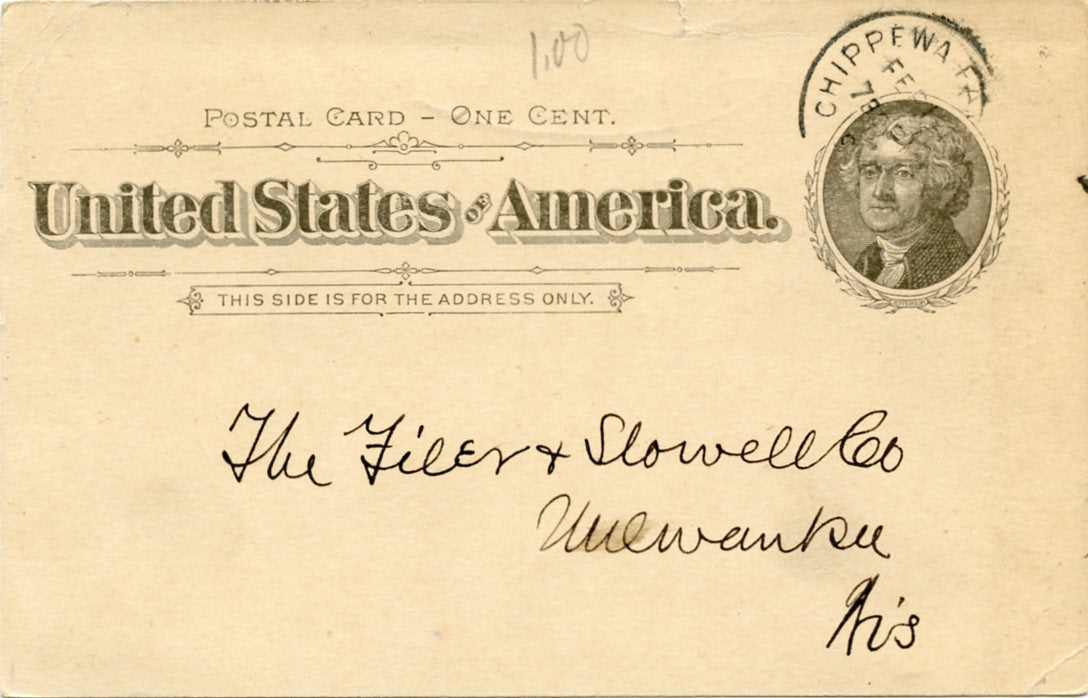 1.00
CHIPPEWA FA
FEB
POSTAL CARD – ONE CENT.
United States OF America.
THIS SIDE IS FOR THE ADDRESS ONLY.
The Filer & Stowell Co
Milwaukee
Wis